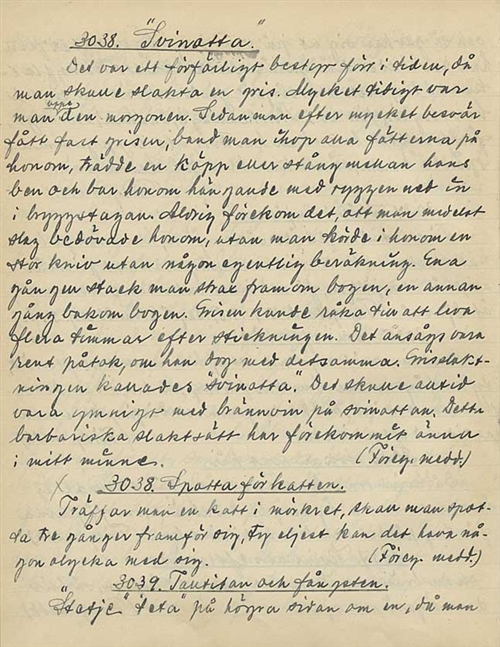 3038. "Svinatta."
Det var ett förfärligt bestyr förr i tiden, då
man skulle slakta en gris. Mycket tidigt var
man uppe den morgonen. Sedan man efter mycket besvär
fått fast grisen, band man ihop alla fötterna på
honom, trädde en käpp eller stång mellan hans
ben och bar honom hängande med ryggen ned in
i bryggstugan. Aldrig förekom det, att man medelst
slag bedövade honom, utan man körde i honom en
stor kniv utan någon egentlig beräkning. Ena
gången stack man strax framom bogen, en annan
gång bakom bogen. Grisen kunde råka till att leva
flera timmar efter stickningen. Det ansågs vara
rent påtok, om han dog med detsamma. Grisslakt-
ningen kallades "Svinatta". Det skulle alltid
vara ymnigt med brännvin på svinattan. Detta
barbariska slaktsätt har förekommit ännu
i mitt minne. (Föreg. medd.)
x 3038. Spotta för katten.
Träffar man en katt i mörkret, skall man spot-
ta tre gånger framför sig, ty eljest kan det hava nå-
gon olycka med sig. (Föreg. medd.)
3039. och
"teta" på högra sidan om en, då man